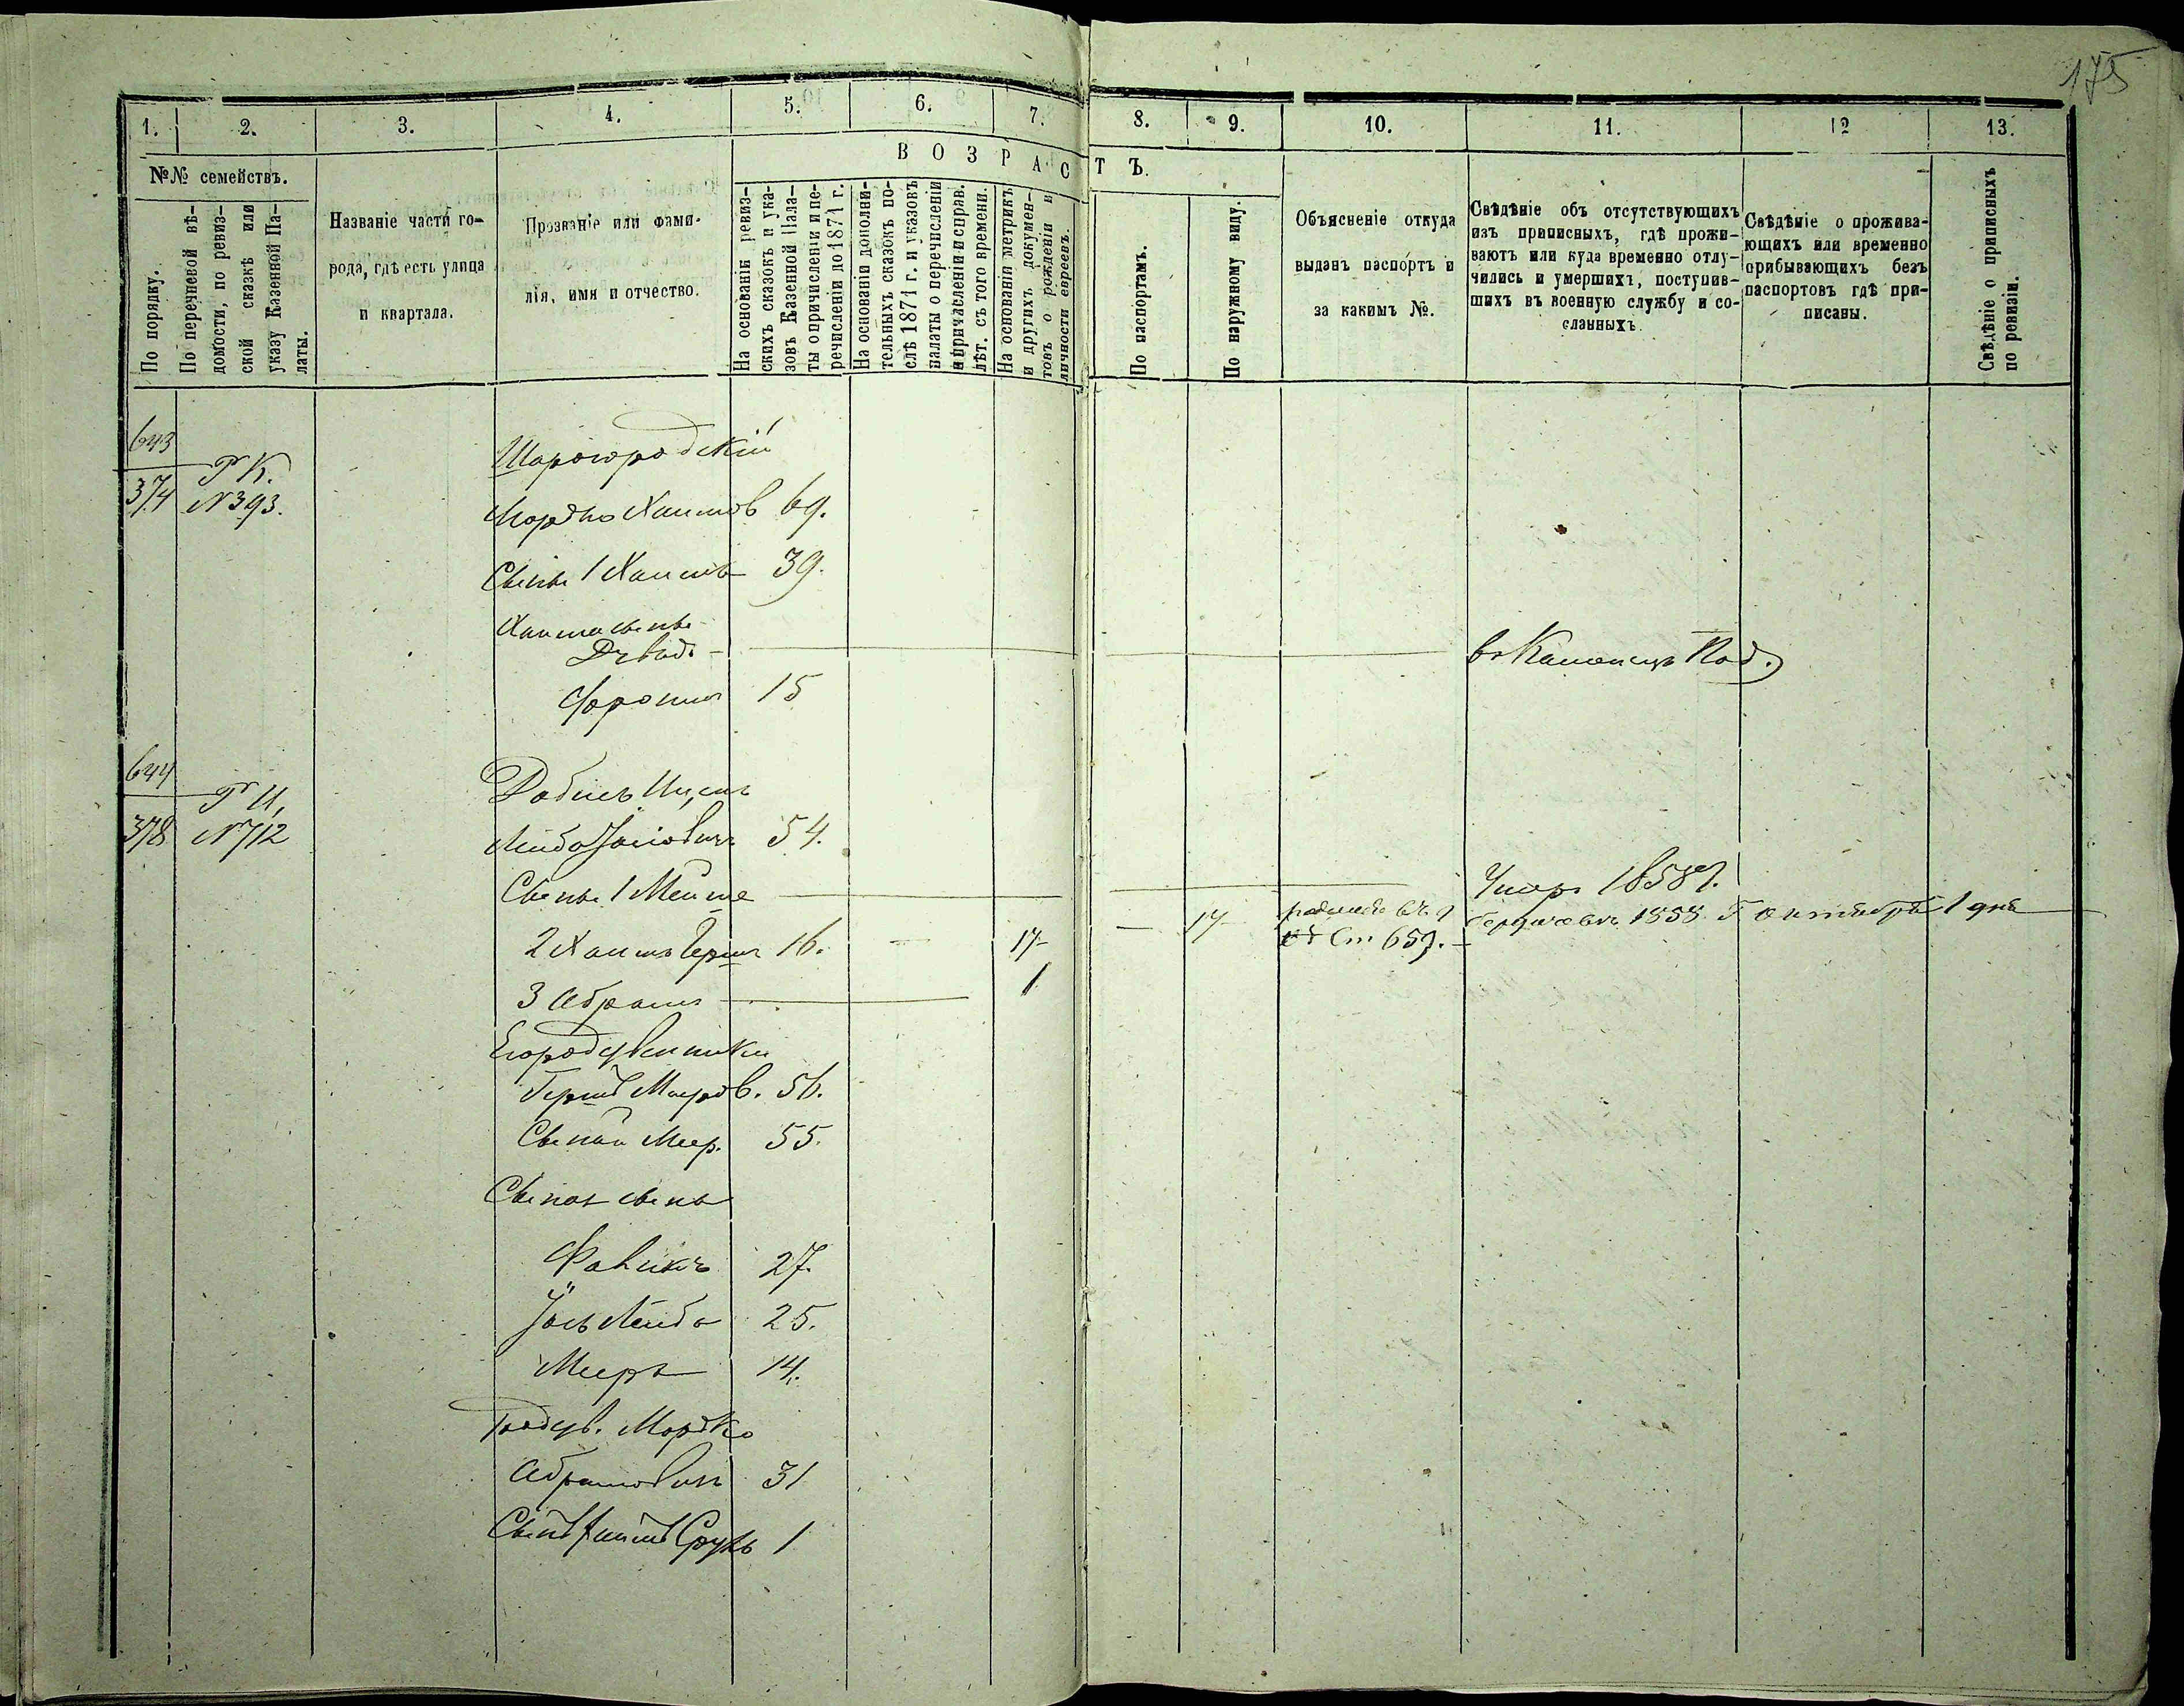 175
1. 2. 3. 4. 5. 6. 7. 8. 9. 10. 11. 12 13.
№№ семействъ.
В О З Р А С Т Ъ.
По порядку.
По перечневой вѣ-
домости, по ревиз-
ской сказкѣ или
указу Казенной Па-
латы.
Названіе части го-
рода, гдѣ есть улица
и квартала.
Прозваніе или фами-
лія, имя и отчество.
На основаніи ревиз-
скихъ сказокъ и ука-
зовъ Казенной Пала-
ты о причисленіи и пе-
речисленіи до 1871 г.
На основаніи дополни-
тельныхъ сказокъ по-
слѣ 1871 г. и указовъ
палаты о перечисленіи
и причисленіи и справ.
лѣт. съ того времени.
На основаніи метрикъ
и другихъ докумен-
товъ о рожденіи и
личности евреевъ.
По паспортамъ.
По наружному виду.
Объясненіе откуда
выданъ паспортъ и
за какимъ №.
Свѣдѣніе объ отсутствующихъ
изъ приписныхъ, гдѣ прожи-
ваютъ или куда временно отлу-
чились и умершихъ, поступив-
шихъ въ военную службу и со-
сланныхъ.
Свѣдѣніе о прожива-
ющихъ или временно
прибывающихъ безъ
паспортовъ гдѣ при-
писаны.
Свѣдѣніе о приписныхъ
по ревизіи.
643
374 Р К.
N 393.
Шарогородскій
Мордко Хаимов 69.
Сынъ 1 Хаимъ 39.
Хаима сынъ
Давидъ — въ Каменцѣ Под.
Фроимъ 15
644
378 Р И,
N 712
Лейба Іосіовичъ 54.
Сынъ 1 Меише — Умеръ 1858 г.
2 Хаимъ Гершъ 16. — 17 — 17 Ст 657. — 1858 Г Октября 1 дня
3 Абрамъ — 1
Его родственники
Гершъ Мееров. 56.
Сынъ Меер. 55.
Сына сынъ
Фавикъ 27.
Іось Лейба 25.
Мееръ 14.
Родств. Мордко
Абрамовичъ 31
Сынъ Хаимъ Сруль 1